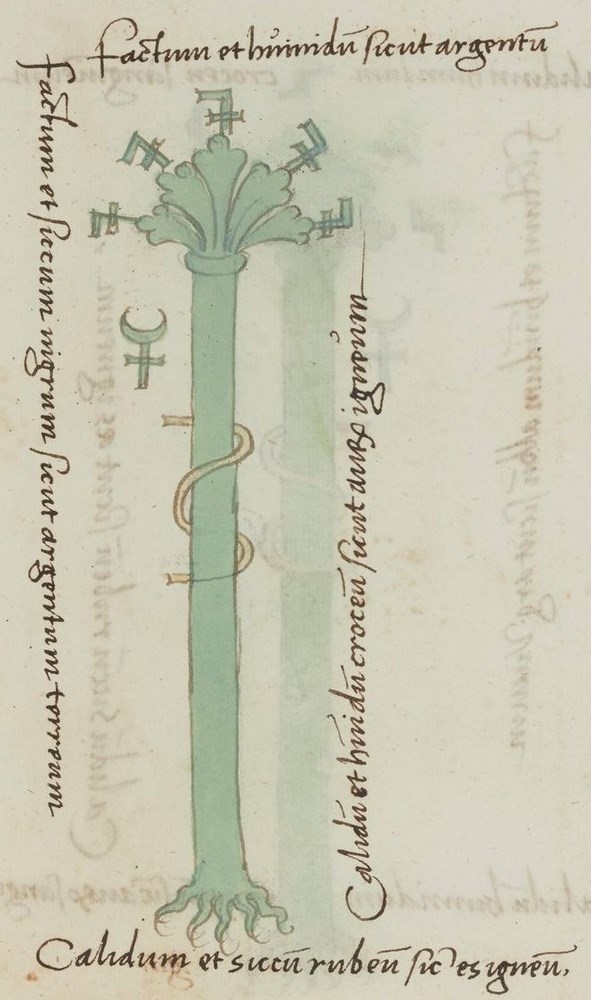 Factum et hūmidū sicut argentū
Factum et siccum nigrum sicut argentum terreum
Calidū et hūidū croceū sicut aurū igneum
Calidum et siccū rubeū sic es igneū,